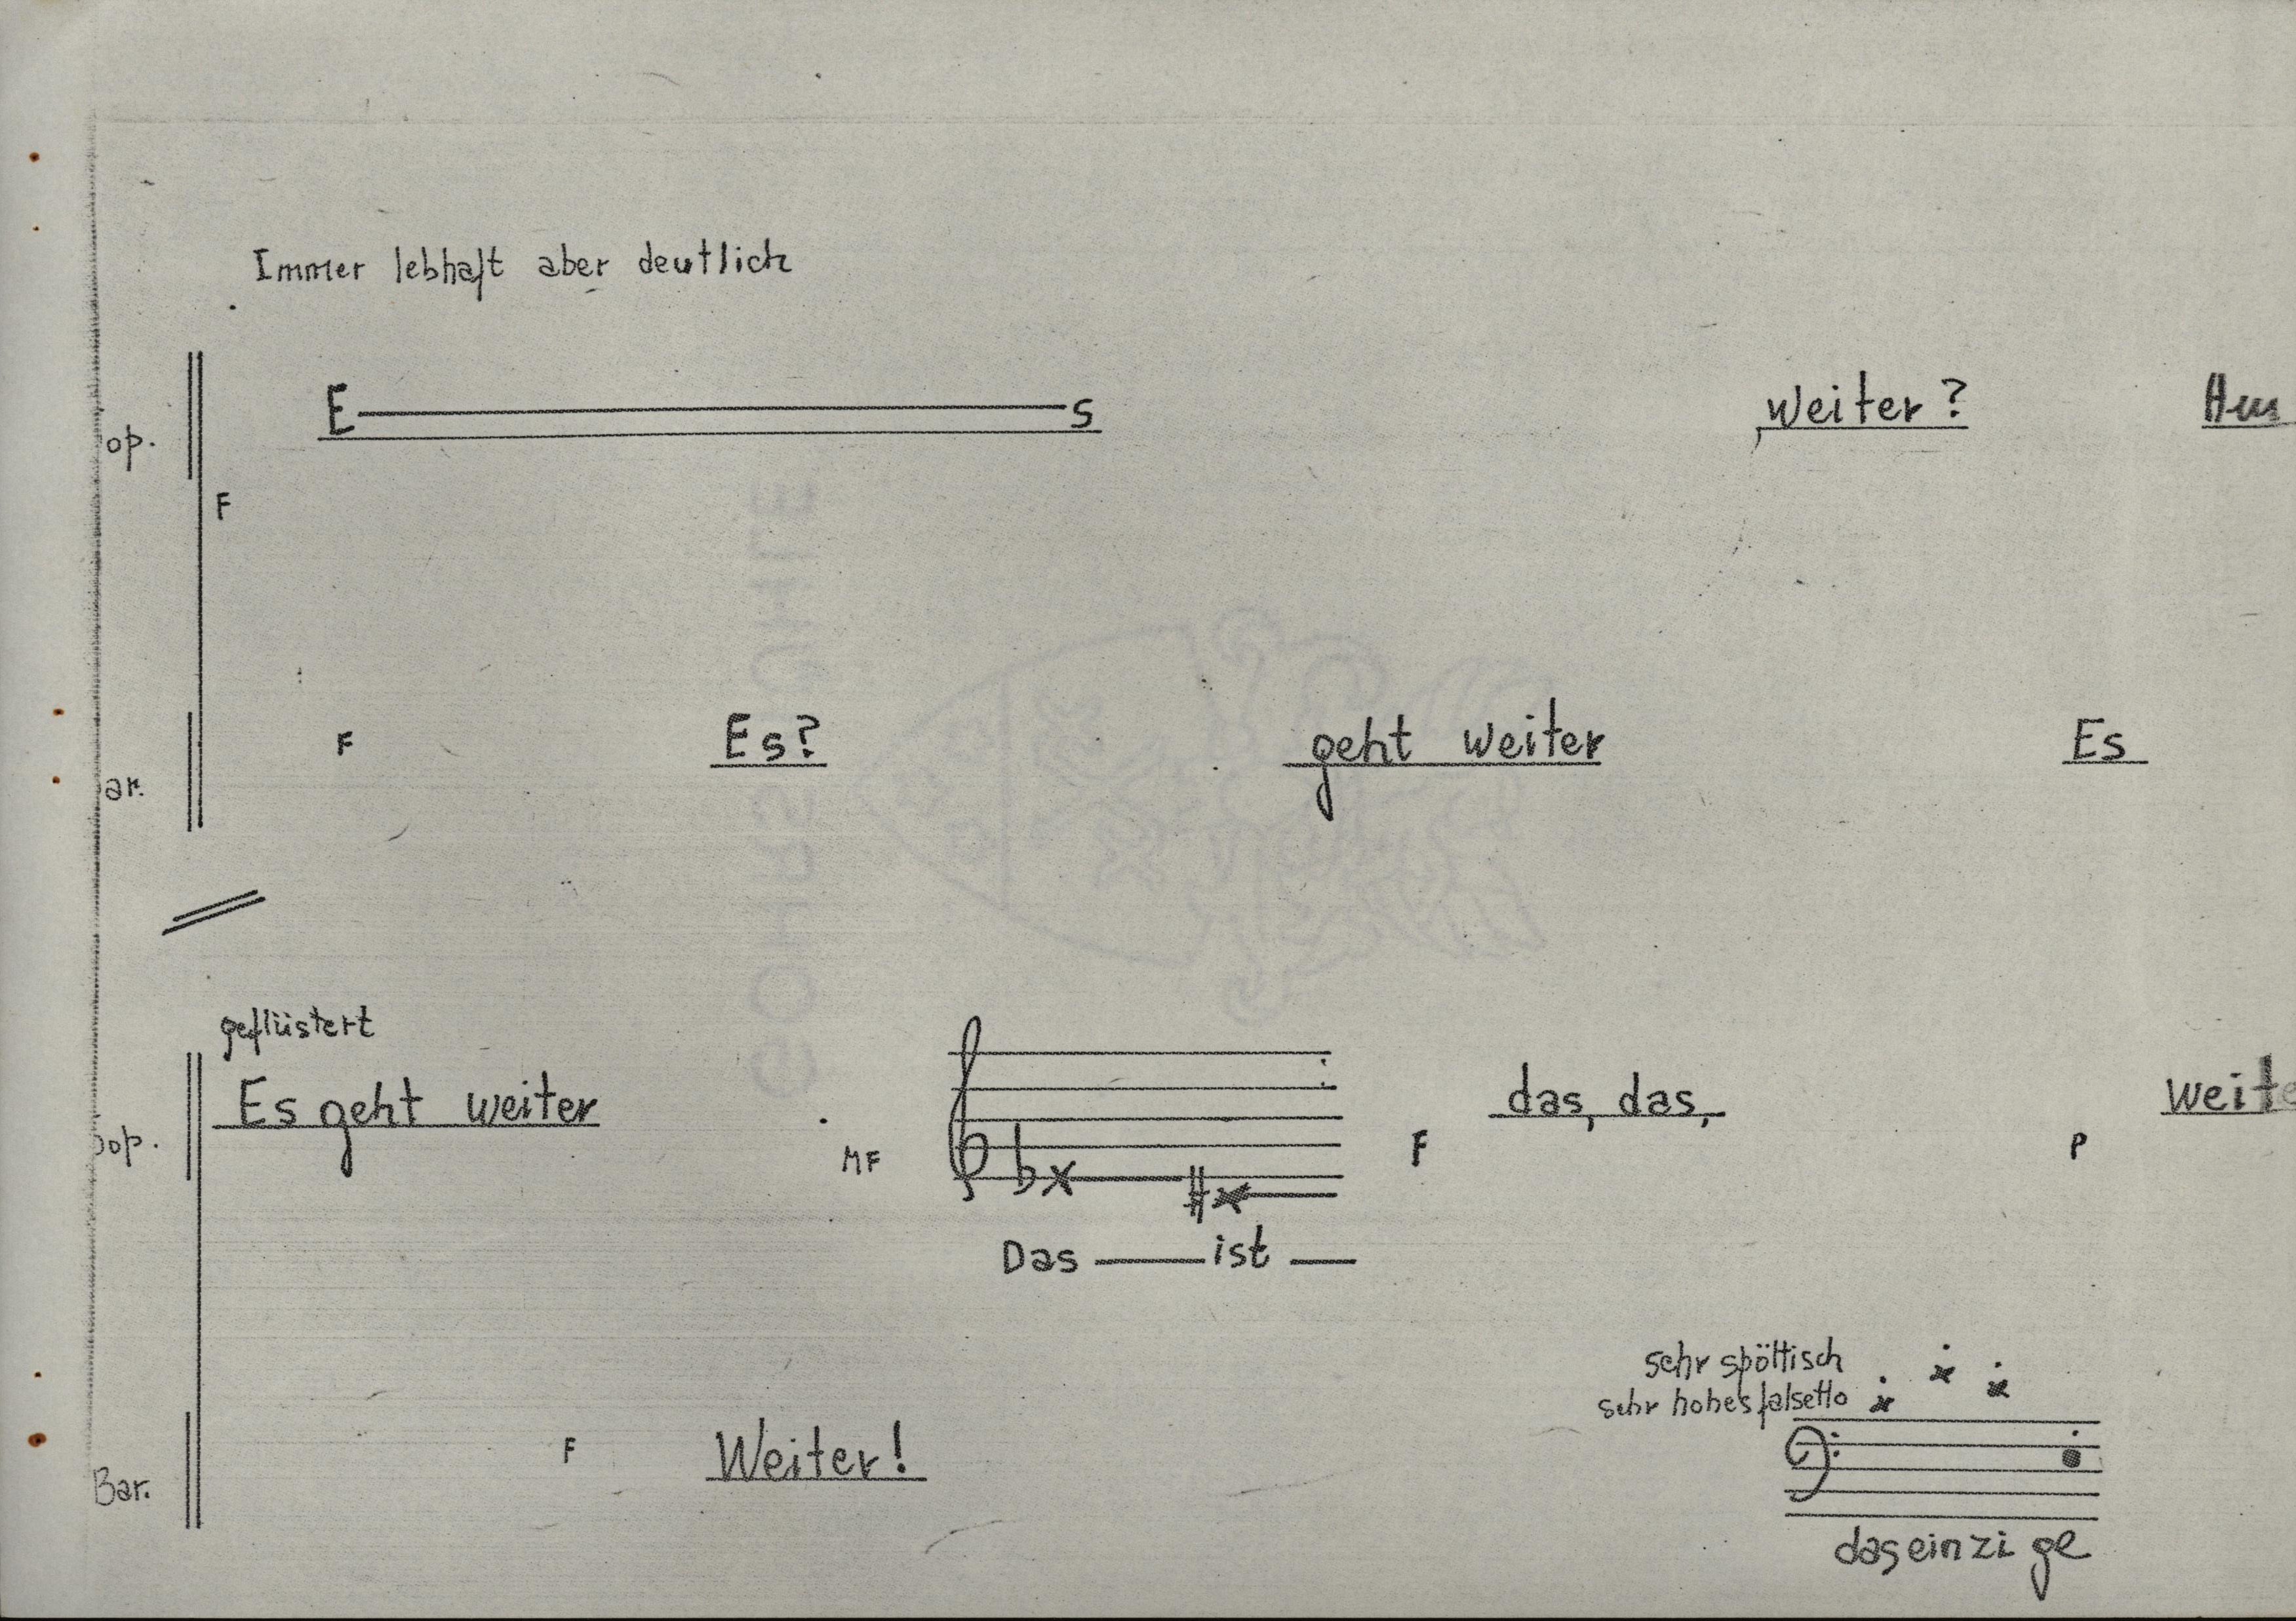 Immer lebhaft aber deutlich
op. E s weiter ?
F
F Es? geht weiter Es
ar.
geflüstert
Es geht weiter das, das, weite
op. MF F P
Das ist
sehr spöttisch
sehr hohes falsetto
F Weiter!
Bar.
das einzi ge